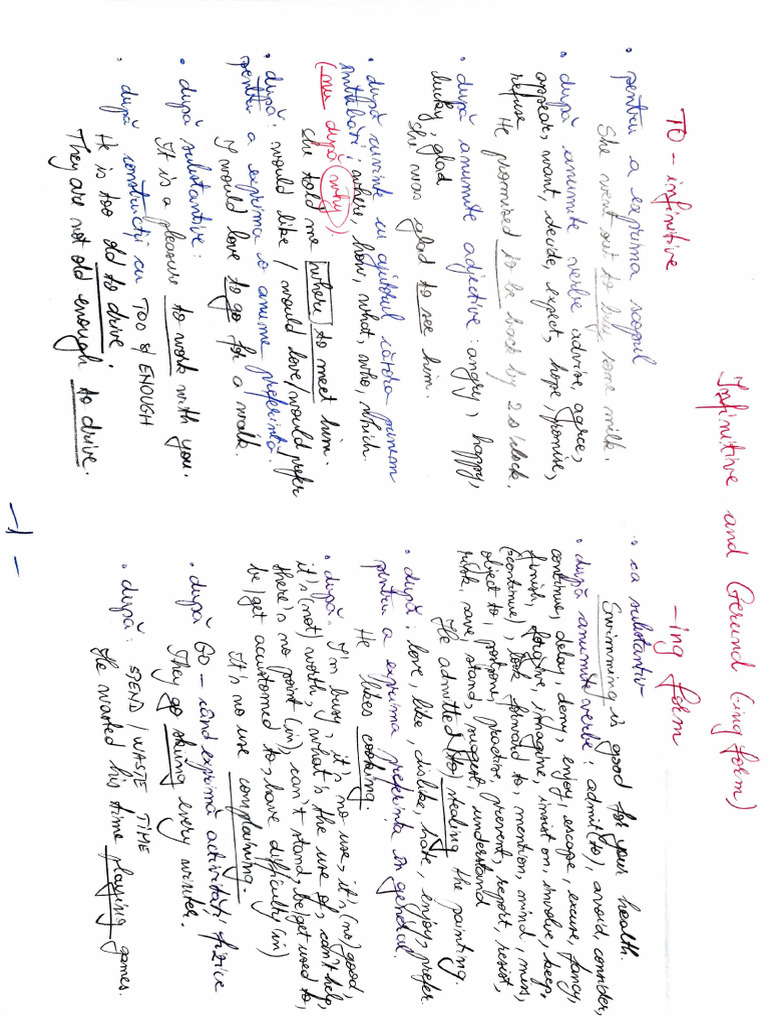 Infinitive and Gerund (-ing form)
TO - infinitive
• pentru a exprima scopul
She went out to buy some milk.
• după anumite verbe: advise, agree,
appear, want, decide, expect, hope, promise,
refuse
He promised to be back by 2 o'clock.
• după anumite adjective: angry, happy,
lucky, glad
She was glad to see him.
• după cuvinte cu ajutorul cărora punem
întrebări: where, how, what, who, which
(nu după why).
She told me where to meet him.
• după: would like / would love / would prefer
pentru a exprima o anume preferință.
I would love to go for a walk.
• după substantive:
It is a pleasure to work with you.
• după construcții cu TOO și ENOUGH
He is too old to drive.
They are not old enough to drive.
-ing form
• ca substantiv
Swimming is good for your health.
• după anumite verbe: admit (to), avoid, consider,
continue, delay, deny, enjoy, escape, excuse, fancy,
finish, forgive, imagine, insist on, involve, keep,
(=continue), look forward to, mention, mind, miss,
object to, postpone, practise, prevent, report, resist,
risk, save, stand, suggest, understand
He admitted (to) stealing the painting.
• după: love, like, dislike, hate, enjoy, prefer
pentru a exprima preferința în general.
He likes cooking.
• după: I'm busy, it's no use, it's (no) good,
it's (not) worth, what's the use of, can't help,
there's no point (in), can't stand, be/get used to,
be/get accustomed to, have difficulty (in)
It's no use complaining.
• după GO - când exprimă activități fizice
They go skiing every winter.
• după: SPEND / WASTE TIME
He wasted his time playing games.
-1-